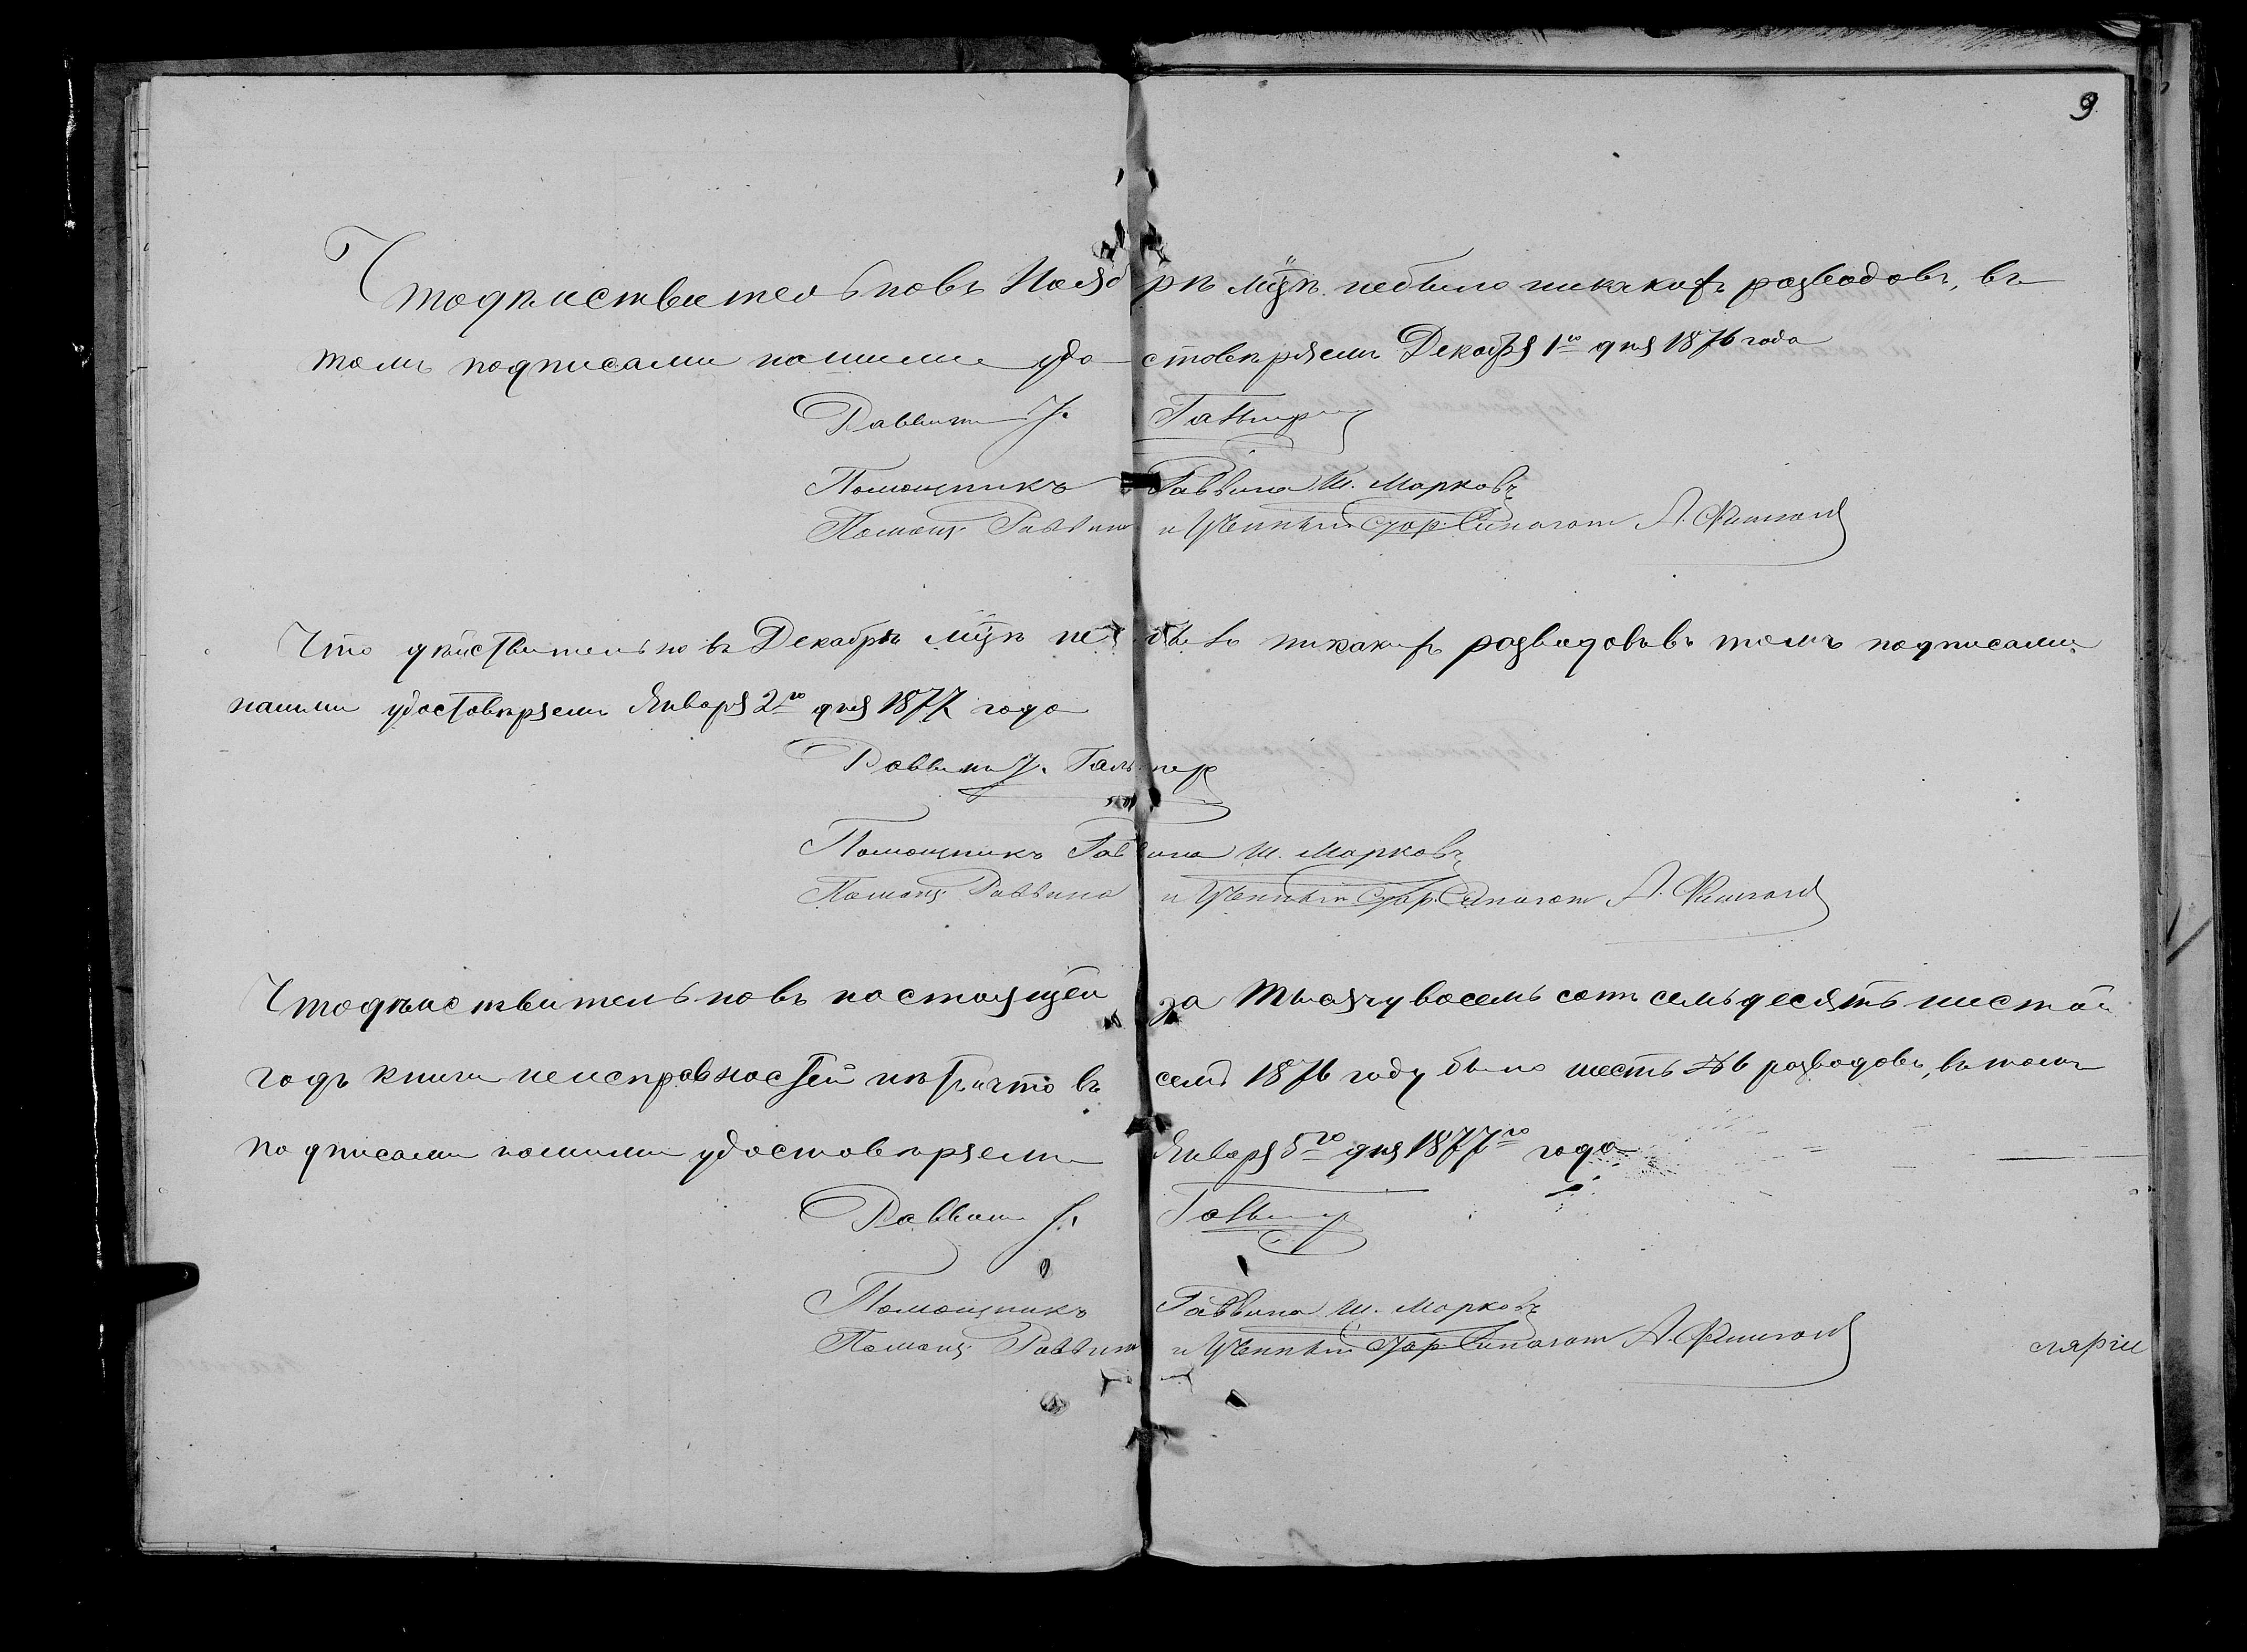 9
Что дѣйствительно въ Ноябрѣ м͞цѣ небыло никакихъ разводовъ, въ
томъ подписами нашими удостовѣряемъ Декабря 1го дня 1876 года
Раввинъ
Помощникъ Раввина Ш. Марковъ
Помощ. Раввина и Ученный Стар. Синагог А. Фишгойд
Что дѣйствительно въ Декабрѣ м͞цѣ не было никакихъ разводовъ въ томъ подписами
нашими удостовѣряемъ Января 2го дня 1877 года
Раввинъ Гальпер
Помощникъ Раввина Ш. Марковъ
Помощ. Раввина и Ученный Стар. Синагог А. Фишгойд
Что дѣйствительно въ настоящей за тысячу восемь сотъ семьдесятъ шестой
годъ книги неисправностей нѣтъ и что въ семъ 1876 году было шесть №6 разводовъ, въ томъ
подписами нашими удостовѣряемъ Января 5го дня 1877го года
Раввинъ
Помощникъ Раввина Ш. Марковъ
Помощ. Раввина и Ученный Стар. Синагог А. Фишгойд